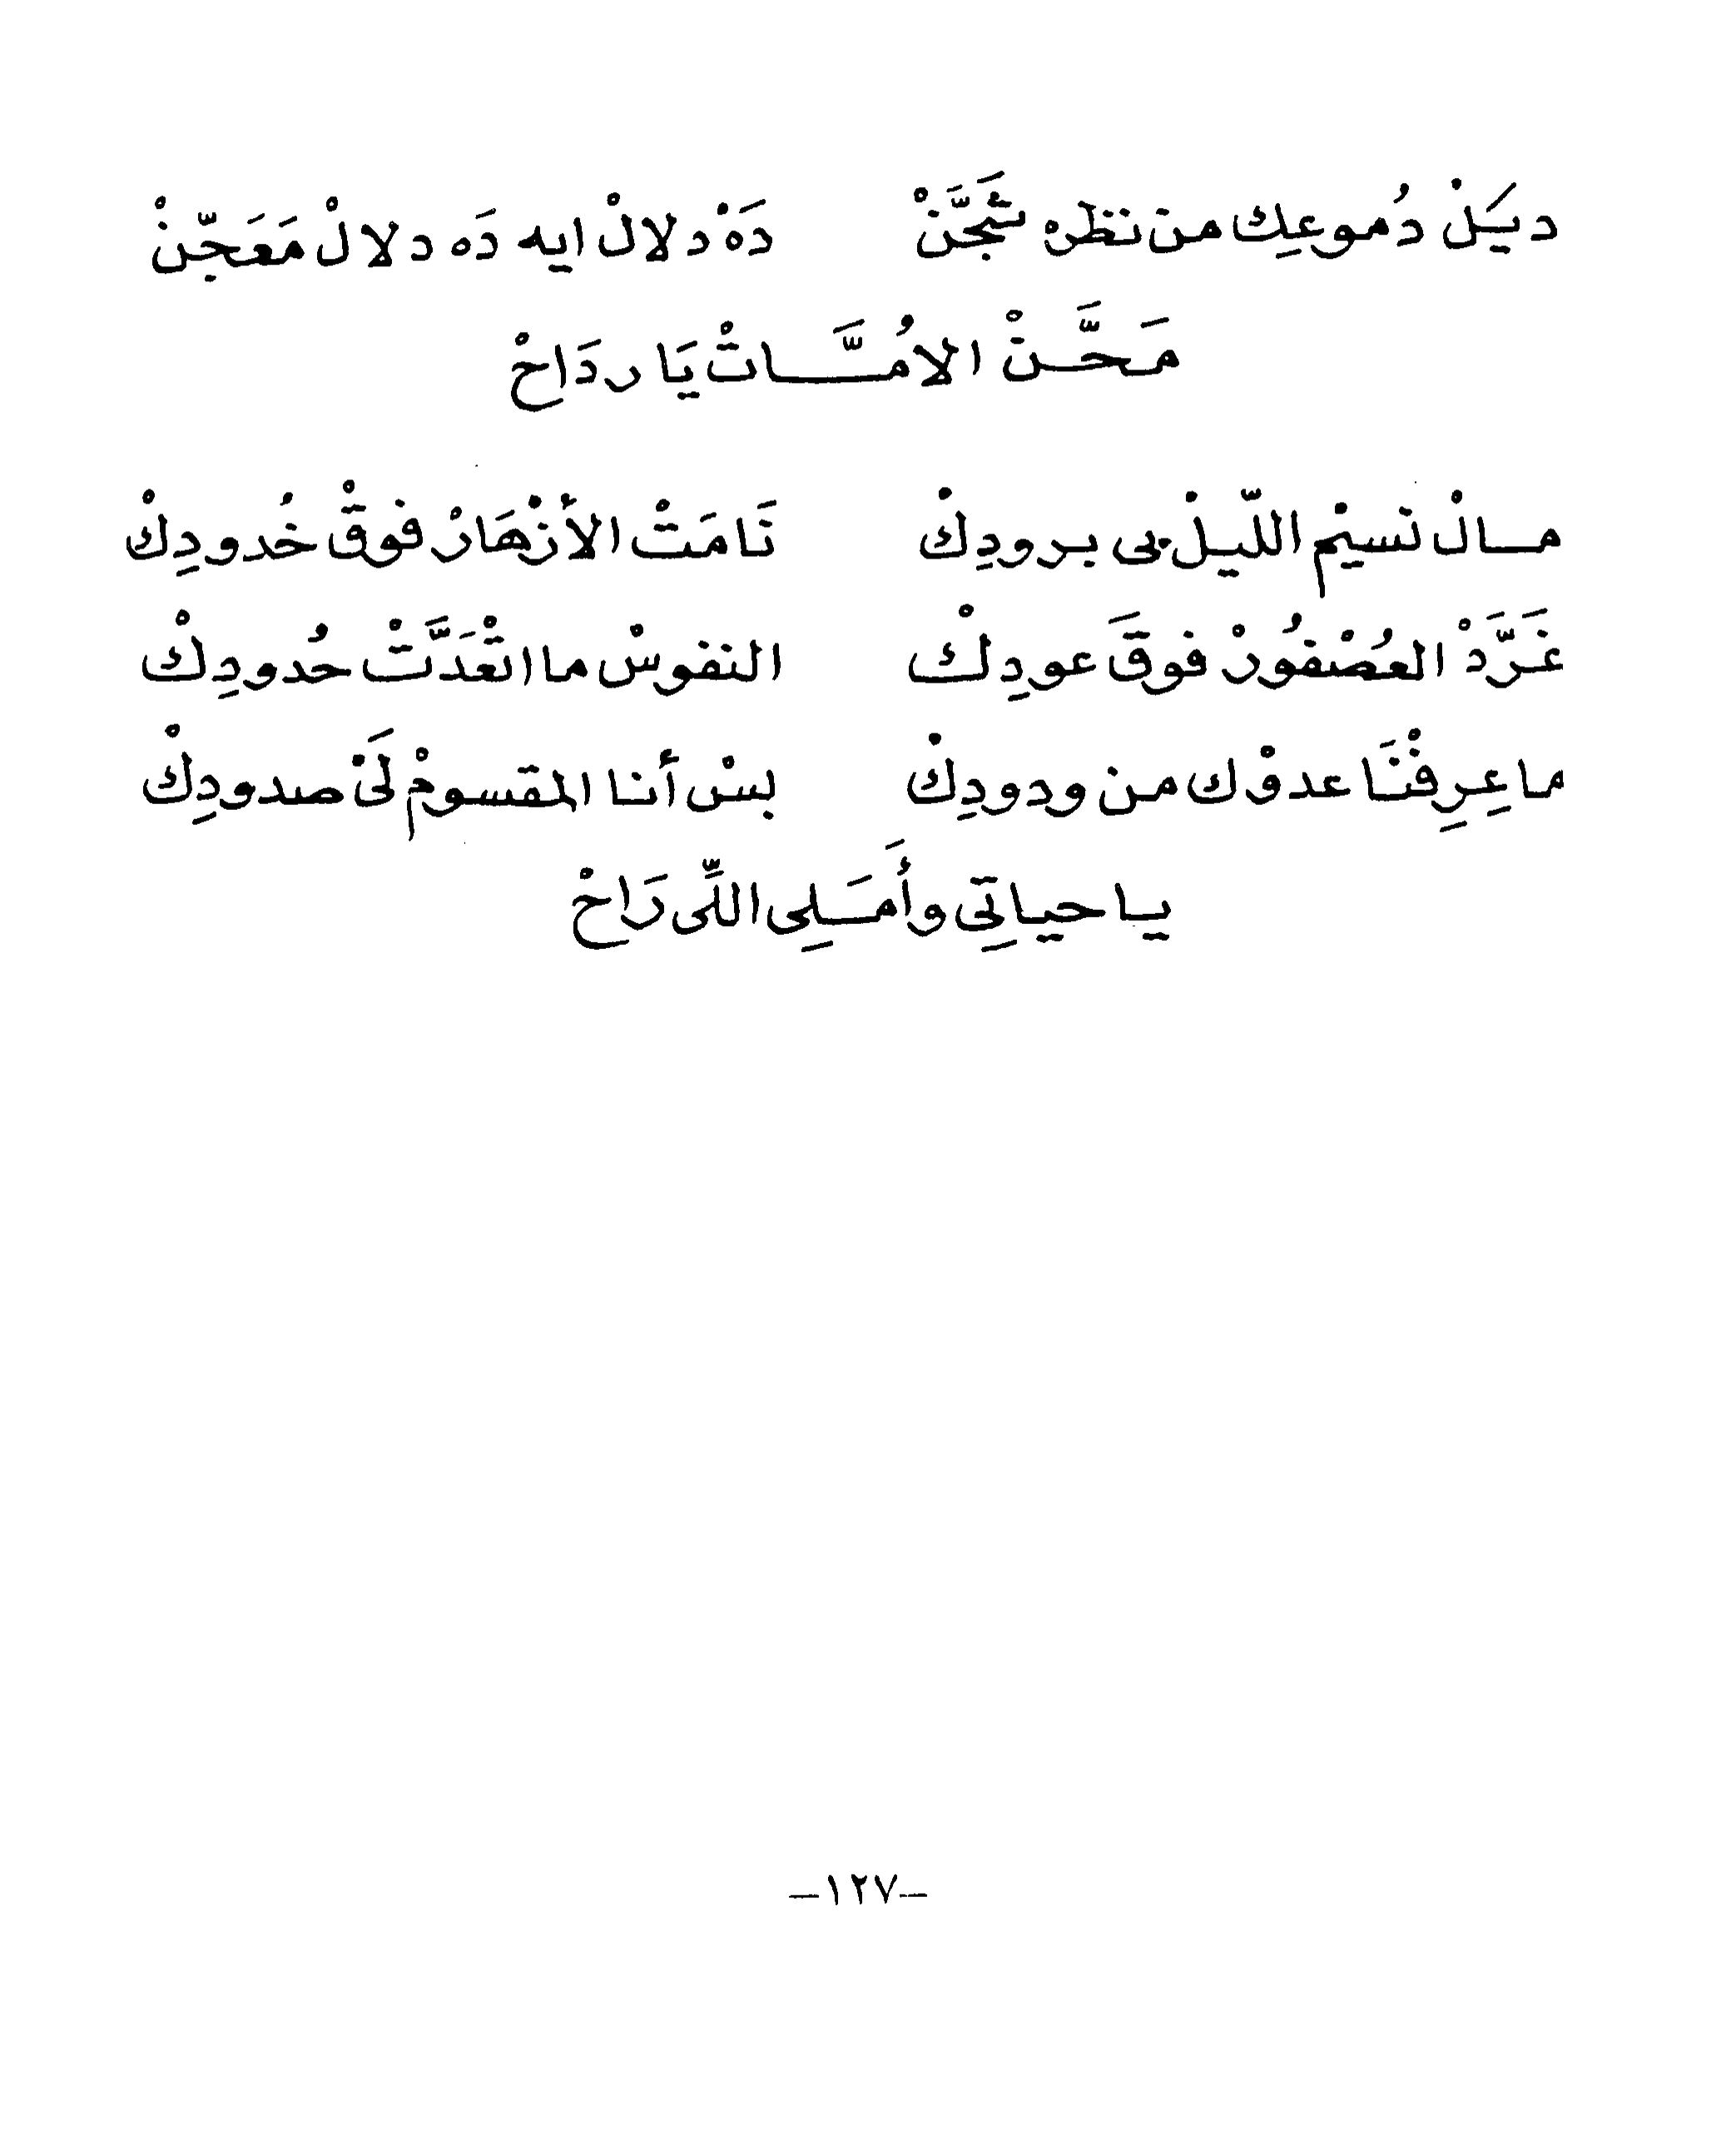 ديَلْ دُموعِك من نظره تَجَّنَّنْ دَهْ دلالْ ايه دَه دلالْ مَعَجِّنْ
مَحَّنْ الامُّاتْ يَا ردَاحْ
مالْ نسيْم اللّيلْ بى برودِكْ نَامَتْ الأزْهَارْ فوقْ خُدودِكْ
غَرَّدْ العُصْفُورْ فوقَ عودِكْ النفوسْ ما اتْعَدَّتْ حُدودِكْ
ما عِرِفْنَا عدوْك من ودودِكْ بسْ أنا المقسومْ لَىْ صدودِكْ
يا حياتِي وأَمَلِي اللّى رَاحْ
-١٢٧-